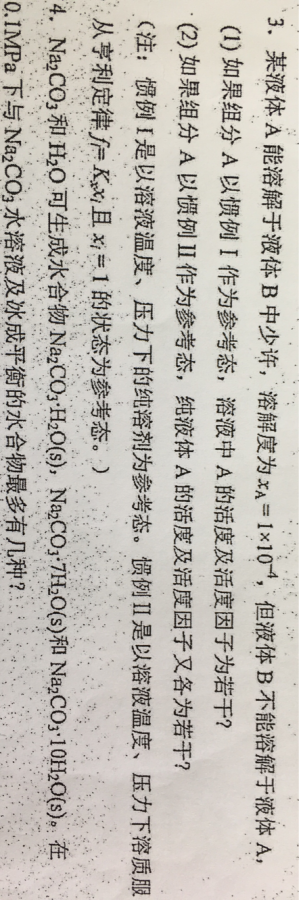 3. 某液体 A 能溶解于液体 B 中少许，溶解度为 xA = 1×10⁻⁴，但液体 B 不能溶解于液体 A，
(1) 如果组分 A 以惯例 I 作为参考态，溶液中 A 的活度及活度因子为若干？
(2) 如果组分 A 以惯例 II 作为参考态，纯液体 A 的活度及活度因子又各为若干？
（注：惯例 I 是以溶液温度、压力下的纯溶剂为参考态。惯例 II 是以溶液温度、压力下溶质服
从亨利定律 fᵢ= Kₓxᵢ 且 xᵢ = 1 的状态为参考态。）
4. Na₂CO₃ 和 H₂O 可生成水合物 Na₂CO₃·H₂O(s)，Na₂CO₃·7H₂O(s)和 Na₂CO₃·10H₂O(s)。在
0.1MPa 下与 Na₂CO₃ 水溶液及冰成平衡的水合物最多有几种？